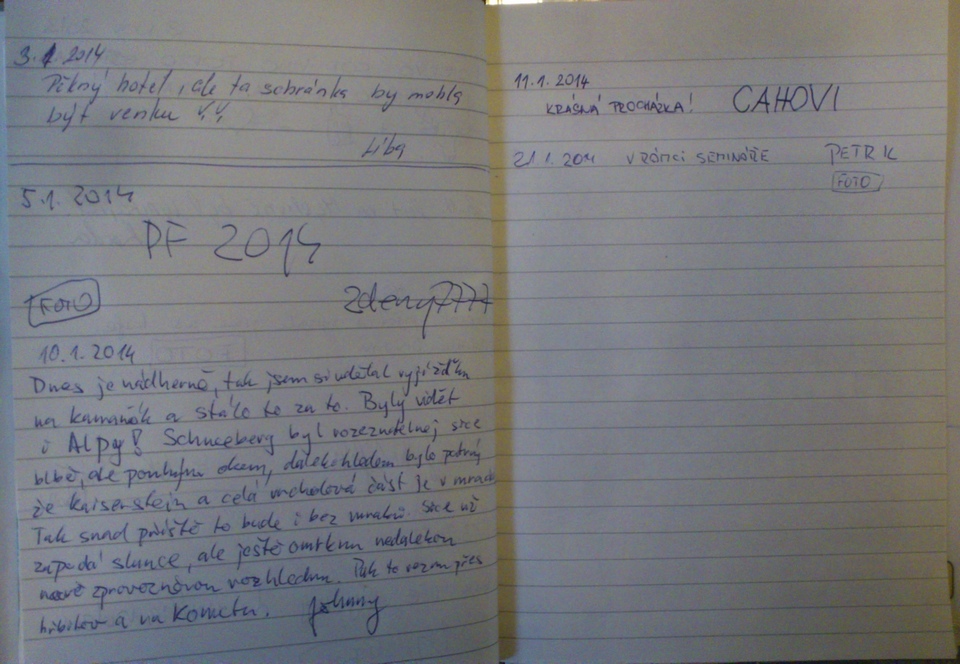 3.1.2014
Pěkný hotel, ale ta schránka by mohla
být venku
Liba
5.1.2014
PF 2014
FOTO
zdeny7777
10.1.2014
Dnes je nádherně, tak jsem si udělal vyjížďku
na kamaňák a stálo to za to. Byly vidět
i Alpy! Schneeberg byl rozeznatelnej sice
blbě, ale pouhým okem, dalekohledem bylo patrný
že Kaiserstein a celá vrcholová část je v mracích
Tak snad příště to bude i bez mraků. Sice už
zapadá slunce, ale ještě omrknu nedalekou
nově zprovozněnou rozhlednu. Pak to vezmu přes
hřbitov a na Kometu. Johany
11.1.2014
KRÁSNÁ PROCHÁZKA! CAHOVI
21.1.2014 V RÁMCI SEMINÁŘE PETR K
FOTO